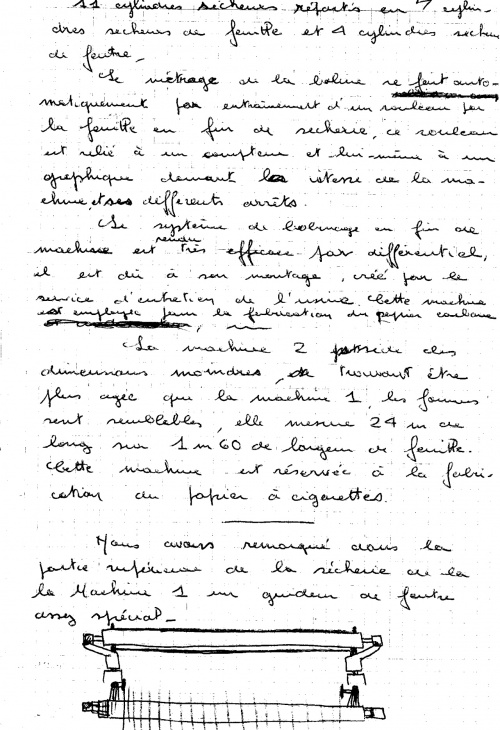 11 cylindres sécheurs répartis en 7 cylin-
dres secheurs de feuille et 4 cylindres secheurs
de feutre_
Le métrage de la bobine se fait auto-
matiquement par entraînement d'un rouleau par
la feuille en fin de secherie, ce rouleau
est relié à un compteur et lui-même à un
graphique donnant la vitesse de la ma-
chine, et ses différents arrêts.
Le système de bobinage en fin de
machine est rendu très efficace par différentiel,
il est dû à son montage, créé par le
service d'entretien de l'usine. Cette machine
est employée pour la fabrication du papier carbone
La machine 2 possède des
dimensions moindres, trouvant être
plus agée que la machine 1, les formes
sont semblables, elle mesure 24 m de
long sur 1 m 60 de largeur de feuille.
Cette machine est réservée à la fabri-
cation du papier à cigarettes.
Nous avons remarqué dans la
partie supérieure de la sécherie de la
la Machine 1 un guideur de feutre
assez spécial_